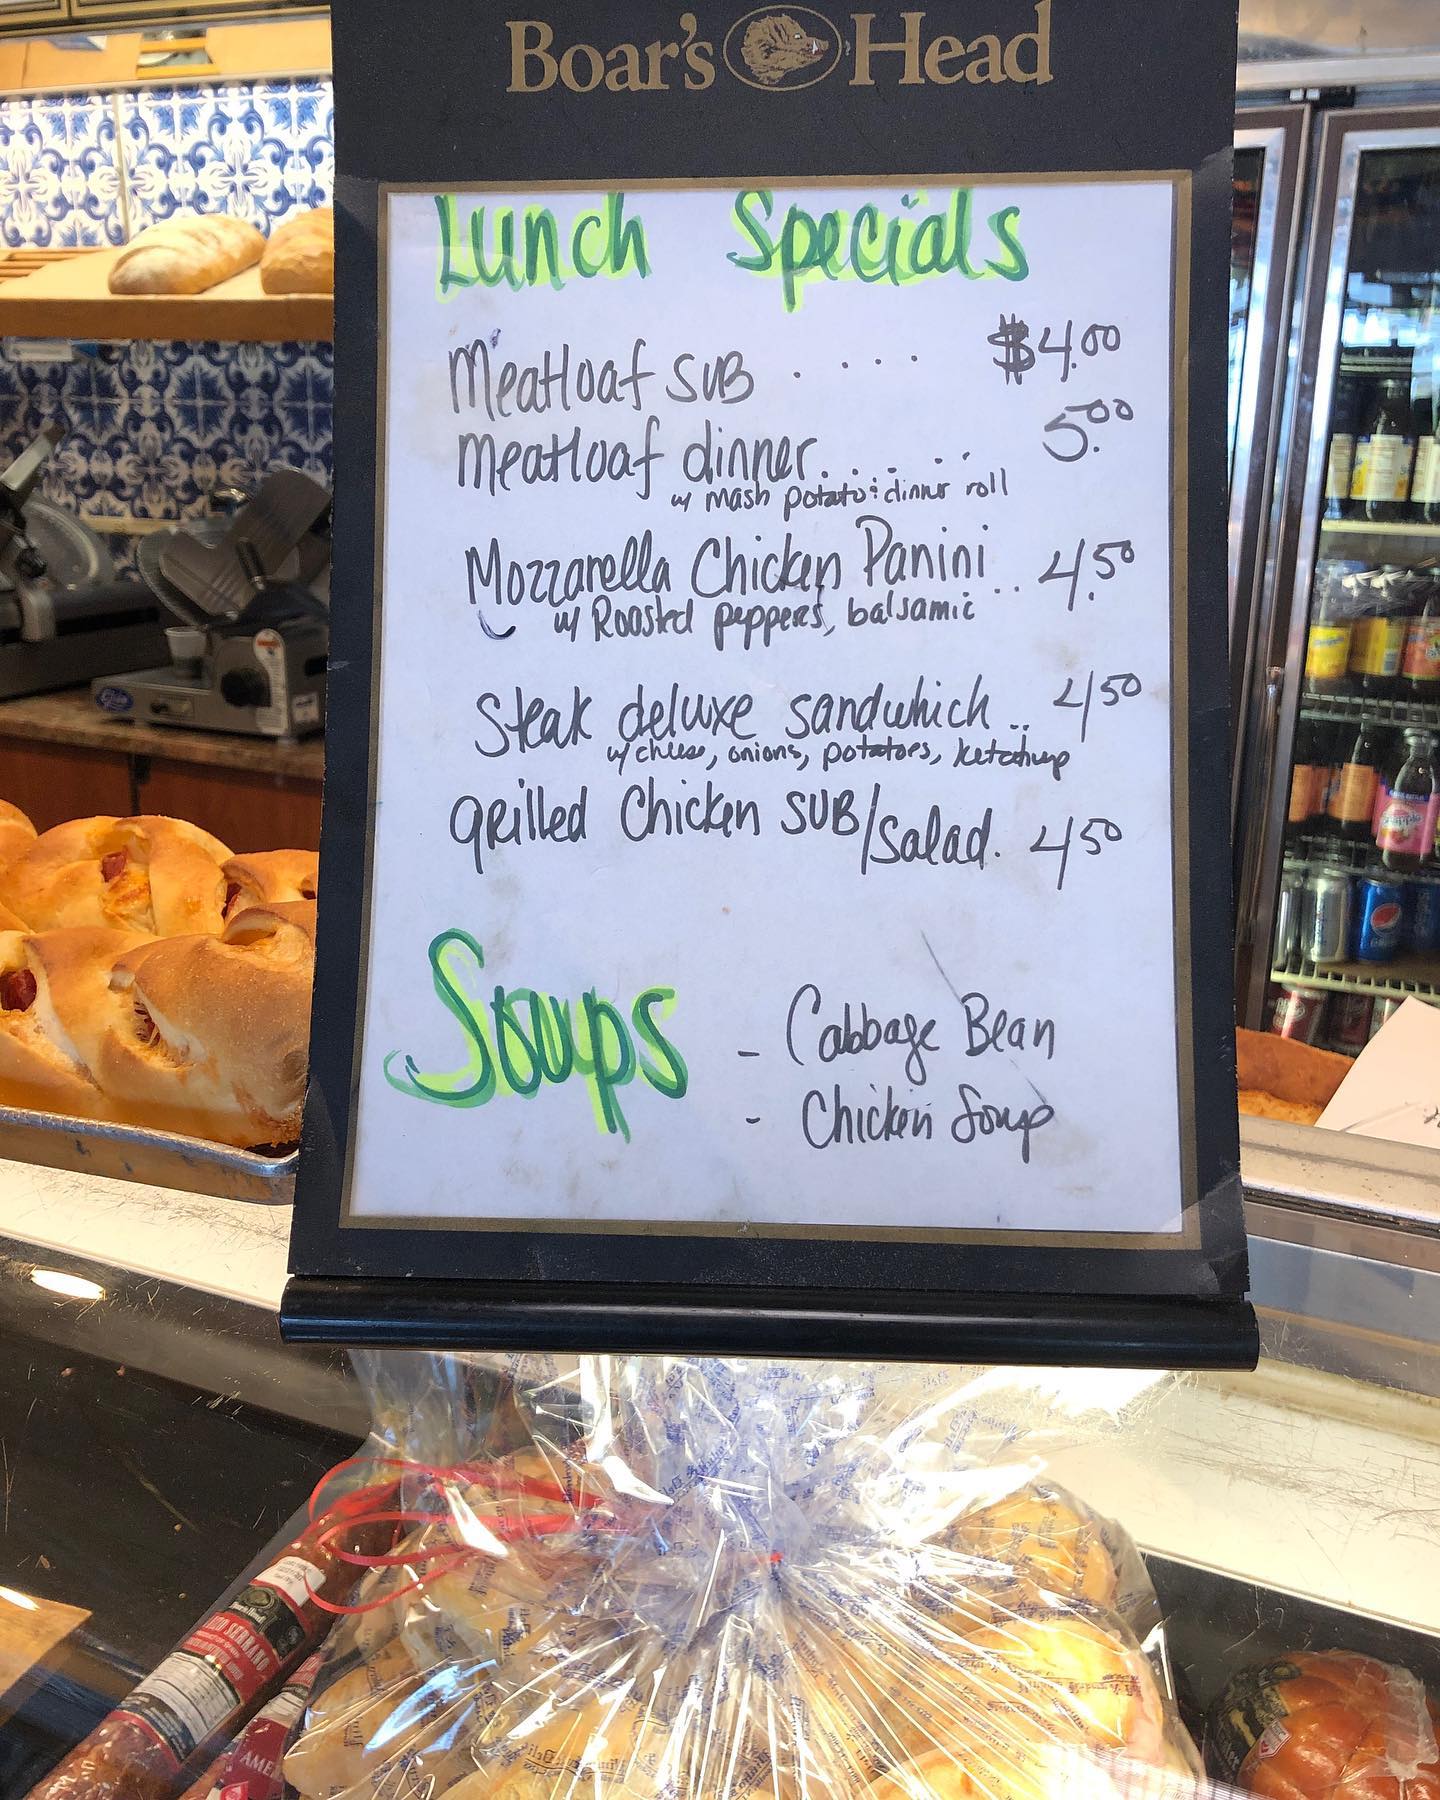 Boar's Head
Lunch Specials
Meatloaf SUB . . . . $4.00
Meatloaf dinner. . . . . 5.00
w/ mash potato & dinner roll
Mozzarella Chicken Panini .. 4.50
w/ Roasted peppers, balsamic
Steak deluxe sandwhich .. 4.50
w/ cheese, onions, potatoes, ketchup
grilled Chicken SUB/Salad. 4.50
Soups - Cabbage Bean
- Chicken Soup
SERRANO
AME